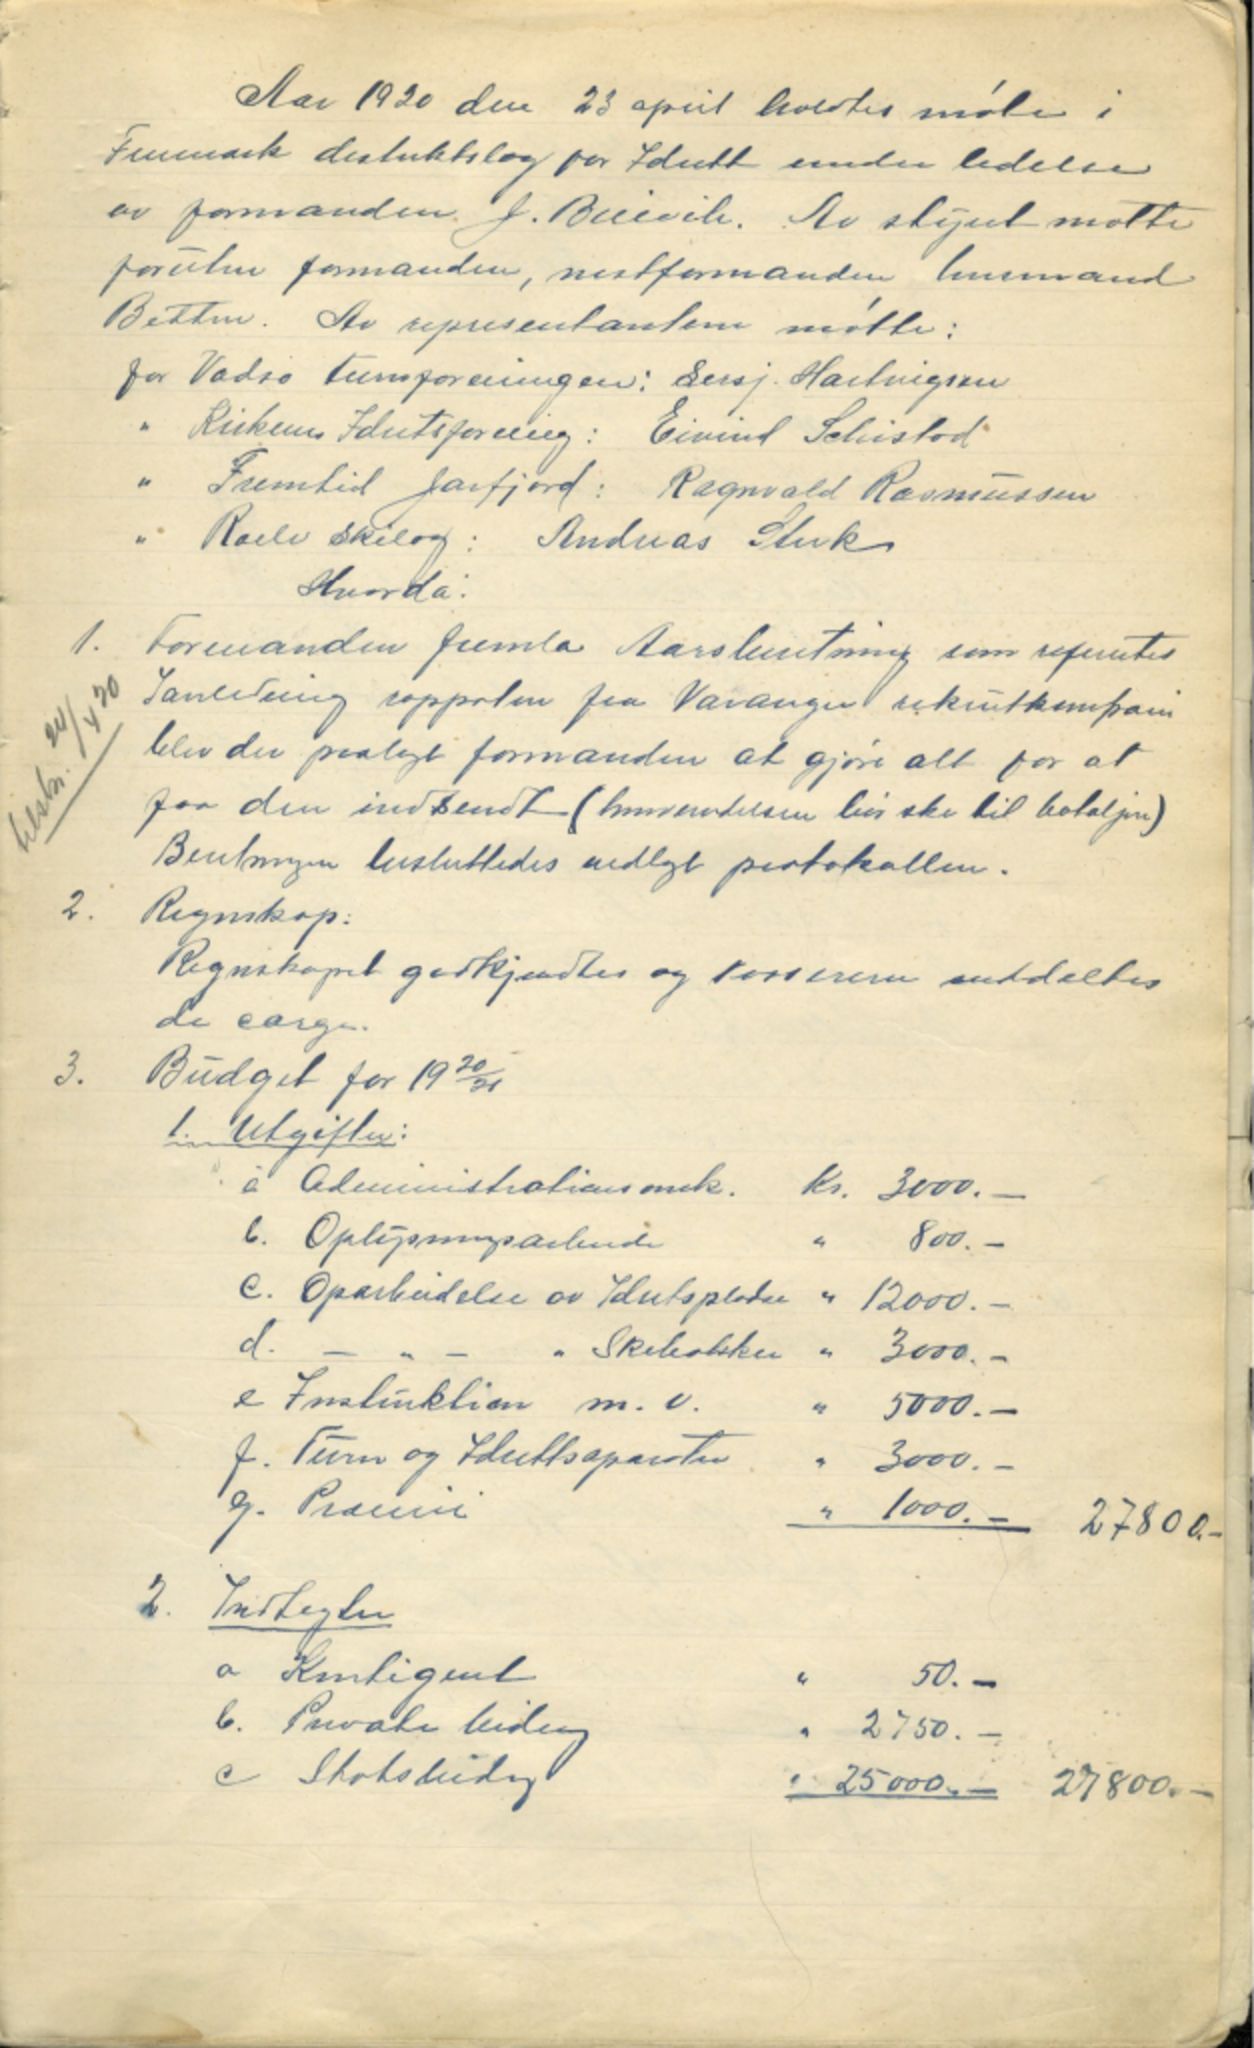 Aar 1920 den 23 april holdtes møte i
Finmark distriktslag for Idræt under ledelse
av formanden J. Breivik. Av styret møtte
foruten formanden, nestformanden
Betten. Av representantene møtte:
for Vadsø turnforeningen: Sersj. Hartvigsen
" Kirkenes Idrætsforening: Eivind Schistad
" Fremtid Jarfjord: Ragnvald Rasmussen
" skilag: Andreas
Hvorda:
1. Formanden fremla Aarsberetning som refertes
I anledning rapporten fra Varanger rekrutkompani
blev der paalagt formanden at gjøre alt for at
faa den indsendt (henvendelsen bør ske til bataljon)
Beretningen besluttedes vedlagt protokollen.
2. Regnskap:
Regnskapet godkjendtes og kassereren meddeltes
de carge.
3. Budget for 19 20/21
1. Utgifter:
a Administrationsomk. Kr. 3000.—
b. Oplysningsarbeide " 800.—
c. Oparbeidelse av Idrætspladse " 12000.—
d. — " — " Skibakker " 3000.—
e Instruktion m. v. " 5000.—
f. Turn og Idrættsaparater " 3000.—
g. Præmie " 1000.— 27800.—
2. Indtegter
a Kontigent " 50.—
b. Private bidrag " 2750.—
c Statsbidrag " 25000.— 27800.—
24/4 20